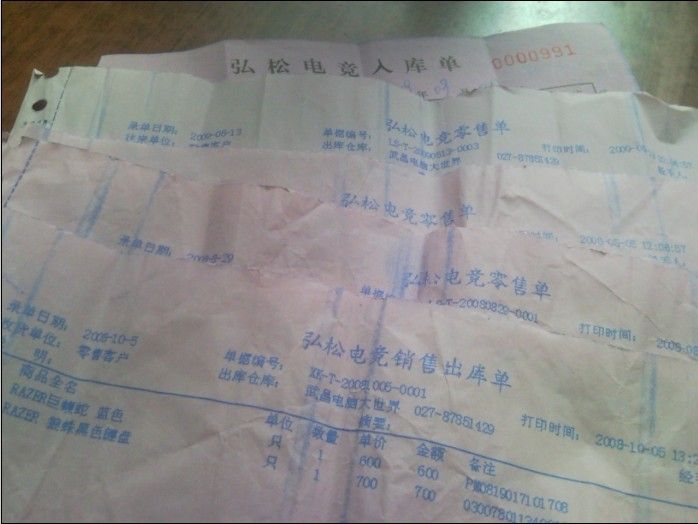 弘松电竞入库单 0000991
弘松电竞零售单
录单日期: 2009-05-13 单据编号: LS-T-20090513-0003 打印时间:
往来单位: 零售客户 出库仓库: 武昌电脑大世界 027-87851429
弘松电竞零售单
2008-05-05 12:06:57
弘松电竞零售单
录单日期: 2008-8-29 LS-T-20080829-0001 打印时间:
弘松电竞销售出库单
录单日期: 2008-10-5 单据编号: XK-T-20081005-0001 打印时间: 2008-10-05
收货单位: 零售客户 出库仓库: 武昌电脑大世界 027-87851429
明: 摘要:
商品全名 单位 数量 单价 金额 备注
RAZER巨蝮蛇 蓝色 只 1 600 600 PM0819017101708
RAZER 狼蛛黑色键盘 只 1 700 700